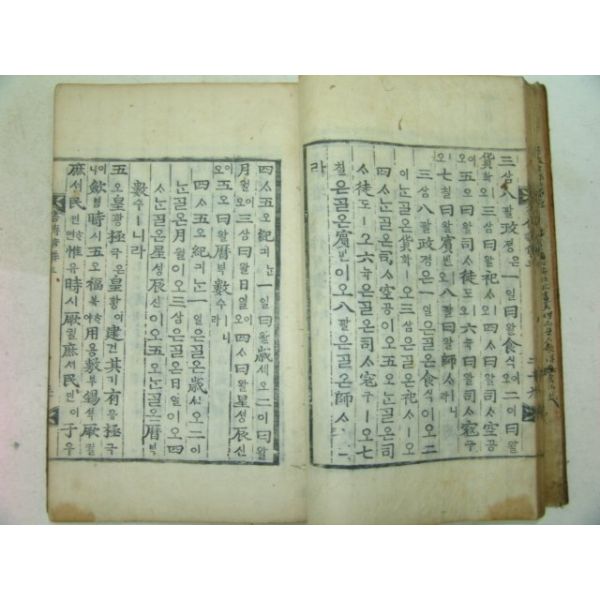 三삼八팔政졍은一일曰왈食식이오二이曰왈
貨화ㅣ오三삼曰왈祀ᄉᆞㅣ오四ᄉᆞ曰왈司ᄉᆞ空공
이오五오曰왈司ᄉᆞ徒도ㅣ오六륙曰왈司ᄉᆞ寇구ㅣ
오七칠曰왈賓빈이오八팔曰왈師ᄉᆞㅣ니라
三삼八팔政졍은一일은ᄀᆞᆯ온食식이오二
이ᄂᆞᆫᄀᆞᆯ온貨화ㅣ오三삼은ᄀᆞᆯ온祀ᄉᆞㅣ오
四ᄉᆞᄂᆞᆫᄀᆞᆯ온司ᄉᆞ空공이오五오ᄂᆞᆫᄀᆞᆯ온司
ᄉᆞ徒도ㅣ오六륙은ᄀᆞᆯ온司ᄉᆞ寇구ㅣ오七
칠은ᄀᆞᆯ온賓빈이오八팔은ᄀᆞᆯ온師ᄉᆞㅣ니
라
四ᄉᆞ五오紀긔ᄂᆞᆫ一일曰왈歲셰오二이曰왈
月월이오三삼曰왈日일이오四ᄉᆞ曰왈星셩辰신이
오五오曰왈曆력數수ㅣ니라
四ᄉᆞ五오紀긔ᄂᆞᆫ一일은ᄀᆞᆯ온歲셰오二이
ᄂᆞᆫᄀᆞᆯ온月월이오三삼은ᄀᆞᆯ온日일이오四
ᄉᆞᄂᆞᆫᄀᆞᆯ온星셩辰신이오五오ᄂᆞᆫᄀᆞᆯ온曆력
數수ㅣ니라
五오皇황極극은皇황이建건其기有유極극이니
斂렴時시五오福복ᄒᆞ야用용敷부錫셕厥궐
庶셔民민ᄒᆞ면惟유時시厥궐庶셔民민이于우